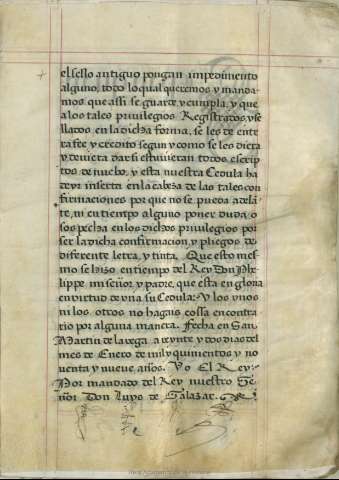 el sello antiguo pongan impedimento
alguno, todo lo qual queremos y manda
mos que assi se guarde, y cumpla, y que
a los tales privilegios Registrados, y se
llados en la dicha forma, se les de ente
ra fee y credito segun y como se les diera
y deviera dar si estuvieran todos escrip
tos de nuebo, y esta nuestra Cedula ha
de yr inserta en la cabeza de las tales con
firmaciones por que no se pueda adelã
te, ni en tiempo alguno poner duda, o
sospecha en los dichos privilegios por
ser la dicha confirmacion, y pliegos de
diferente letra, y tinta. Que esto mes
mo se hizo en tiempo del Rey Don Phe
lippe mi señor, y padre, que esta en gloria
en virtud de una su Cedula: Y los unos
ni los otros no hagais cossa en contra
rio por alguna manera. Fecha en San
Martin de la vega a veynte y dos dias del
mes de Enero de mil y quinientos y no
venta y nueve años. Yo El Rey.
Por mandado del Rey nuestro Se
ñor Don Luys de Salazar.